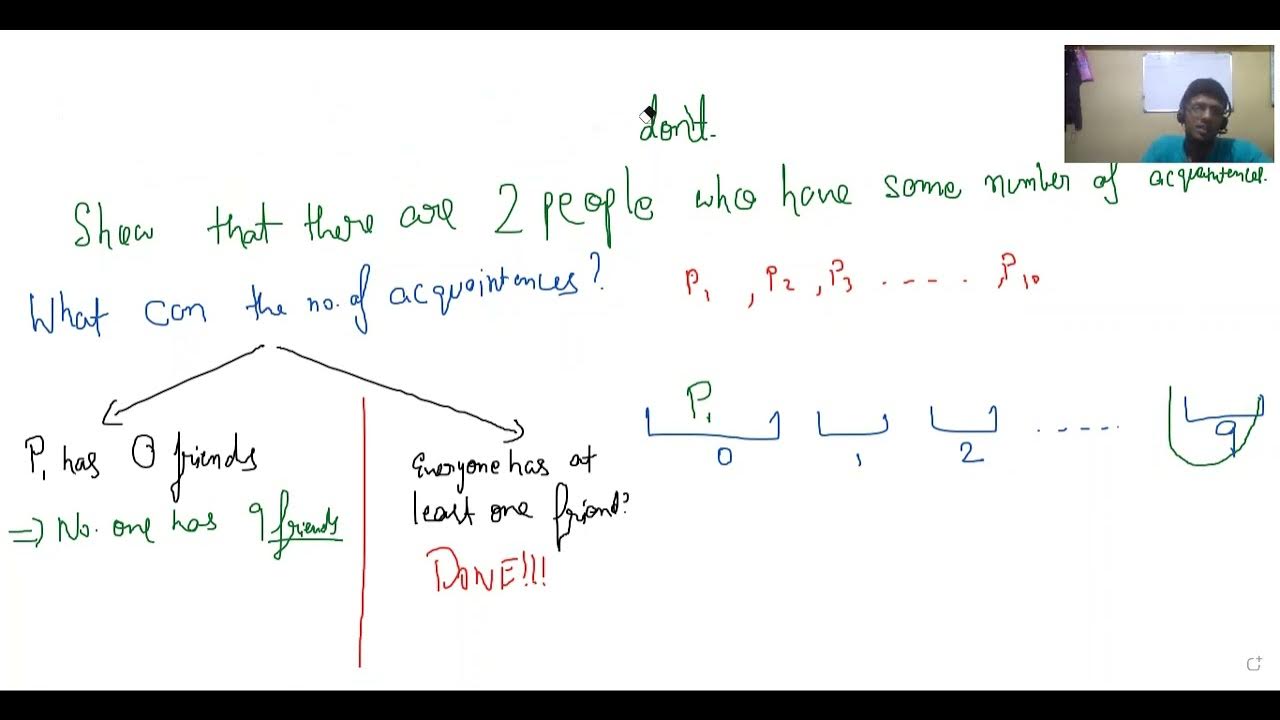 don't.
Show that there are 2 people who have some number of acquaintences.
What can the no. of acquointences?
P1, P2, P3 ..... , P10
P1
0 1 2 ..... 9
P1 has 0 friends
⇒ No. one has 9 friends
Everyone has at
least one friend?
DONE!!!